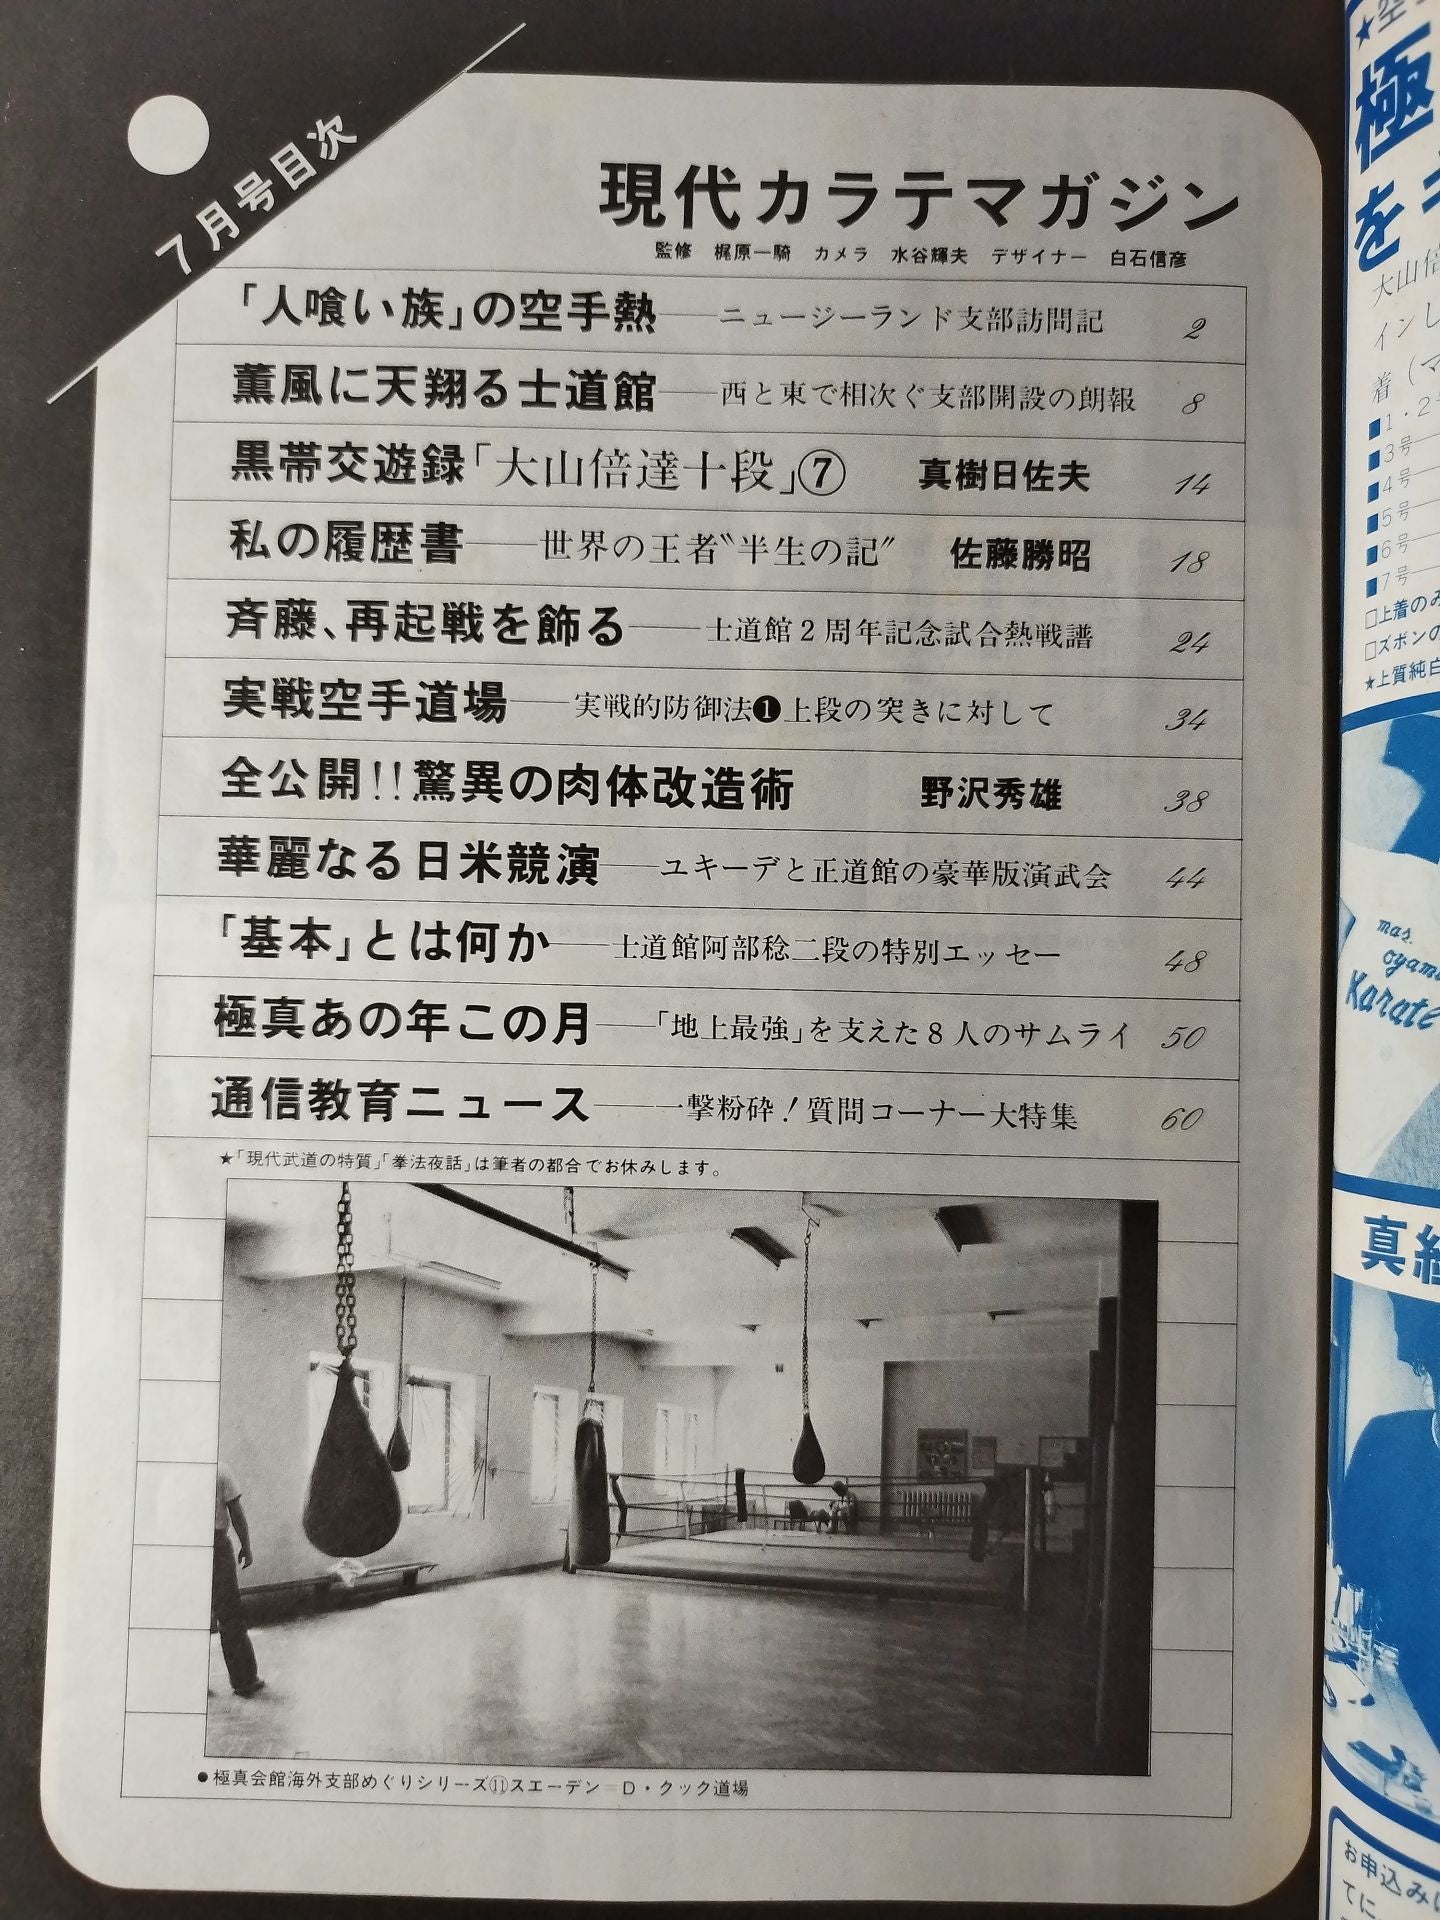 7月号目次
現代カラテマガジン
監修 梶原一騎 カメラ 水谷輝夫 デザイナー 白石信彦
「人喰い族」の空手熱——ニュージーランド支部訪問記 2
薫風に天翔る士道館——西と東で相次ぐ支部開設の朗報 8
黒帯交遊録「大山倍達十段」⑦ 真樹日佐夫 14
私の履歴書——世界の王者〝半生の記〟 佐藤勝昭 18
斉藤、再起戦を飾る——士道館2周年記念試合熱戦譜 24
実戦空手道場——実戦的防御法❶上段の突きに対して 34
全公開!!驚異の肉体改造術 野沢秀雄 38
華麗なる日米競演——ユキーデと正道館の豪華版演武会 44
「基本」とは何か——士道館阿部稔二段の特別エッセー 48
極真あの年この月——「地上最強」を支えた8人のサムライ 50
通信教育ニュース——一撃粉砕!質問コーナー大特集 60
★「現代武道の特質」「拳法夜話」は筆者の都合でお休みします。
●極真会館海外支部めぐりシリーズ⑪スエーデン=D・クック道場
極
を
大山倍
インし
着（マ
■1・2号
■3号
■4号
■5号
■6号
■7号
□上着のみ
□ズボンの
★上質純白
mas.
oyama
Karate
真
お申込みは
てに